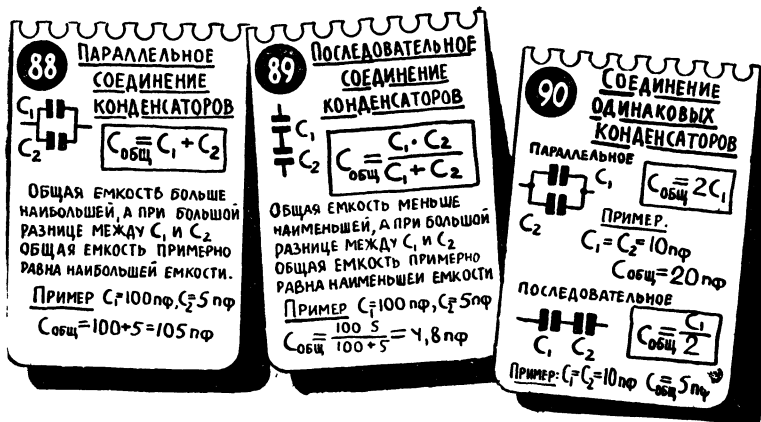 88
ПАРАЛЛЕЛЬНОЕ
СОЕДИНЕНИЕ
КОНДЕНСАТОРОВ
C₁
C₂
Cобщ = C₁ + C₂
ОБЩАЯ ЕМКОСТЬ БОЛЬШЕ
НАИБОЛЬШЕЙ, А ПРИ БОЛЬШОЙ
РАЗНИЦЕ МЕЖДУ C₁ И C₂
ОБЩАЯ ЕМКОСТЬ ПРИМЕРНО
РАВНА НАИБОЛЬШЕЙ ЕМКОСТИ.
ПРИМЕР C₁=100пф, C₂=5пф
Cобщ=100+5=105пф
89
ПОСЛЕДОВАТЕЛЬНОЕ
СОЕДИНЕНИЕ
КОНДЕНСАТОРОВ
C₁
C₂
Cобщ = C₁ · C₂ / C₁ + C₂
ОБЩАЯ ЕМКОСТЬ МЕНЬШЕ
НАИМЕНЬШЕЙ, А ПРИ БОЛЬШОЙ
РАЗНИЦЕ МЕЖДУ C₁ И C₂
ОБЩАЯ ЕМКОСТЬ ПРИМЕРНО
РАВНА НАИМЕНЬШЕЙ ЕМКОСТИ
ПРИМЕР C₁=100пф, C₂=5пф
Cобщ = 100 5 / 100+5 = 4,8пф
90
СОЕДИНЕНИЕ
ОДИНАКОВЫХ
КОНДЕНСАТОРОВ
ПАРАЛЛЕЛЬНОЕ
C₁
C₂
Cобщ = 2C₁
ПРИМЕР:
C₁=C₂=10пф
Cобщ=20пф
ПОСЛЕДОВАТЕЛЬНОЕ
C₁ C₂
Cобщ = C₁ / 2
ПРИМЕР: C₁=C₂=10пф Cобщ=5пф